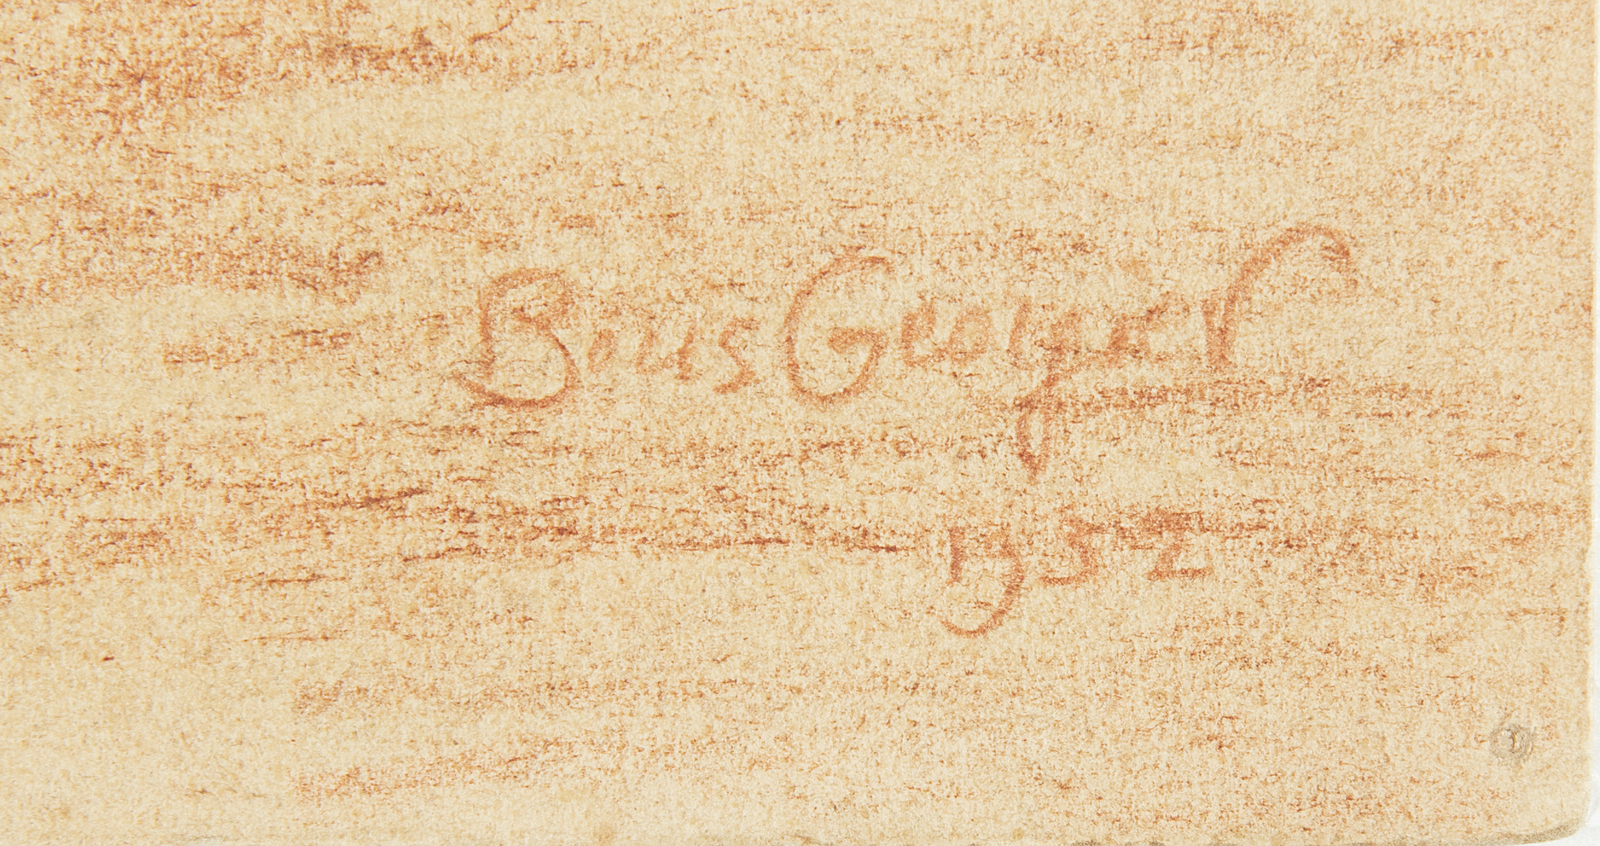 Boris Georgiev
1952